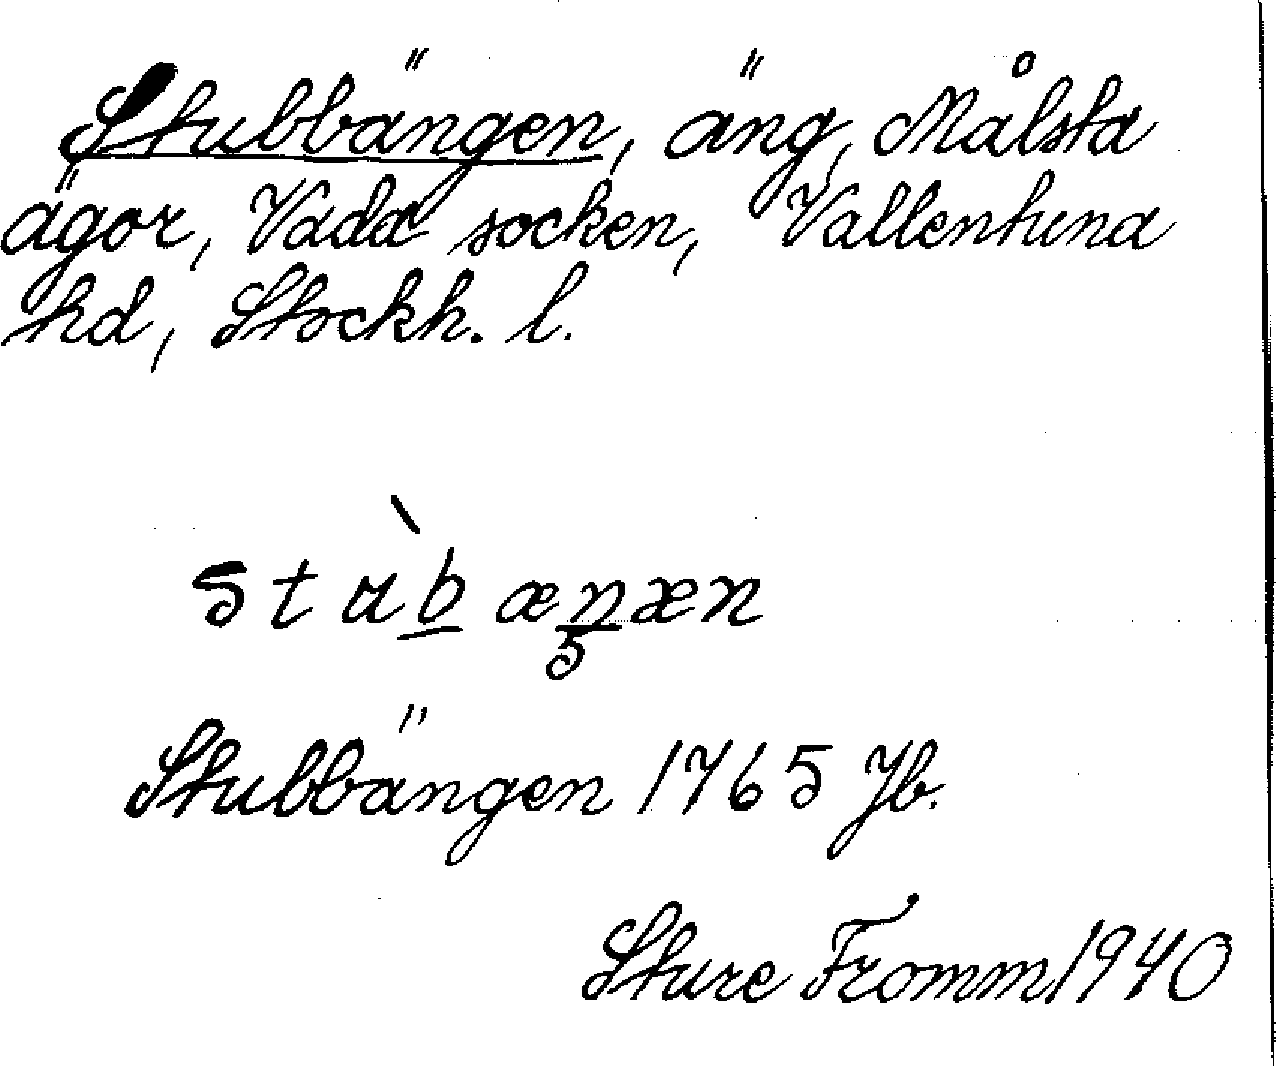 Stubbängen, äng, Målsta
ägor, Vada socken, Vallentuna
hd, Stockh. l.
stub̲æn̲æn
5
Stubbängen 1765 Jb.
Sture Fromm 1940